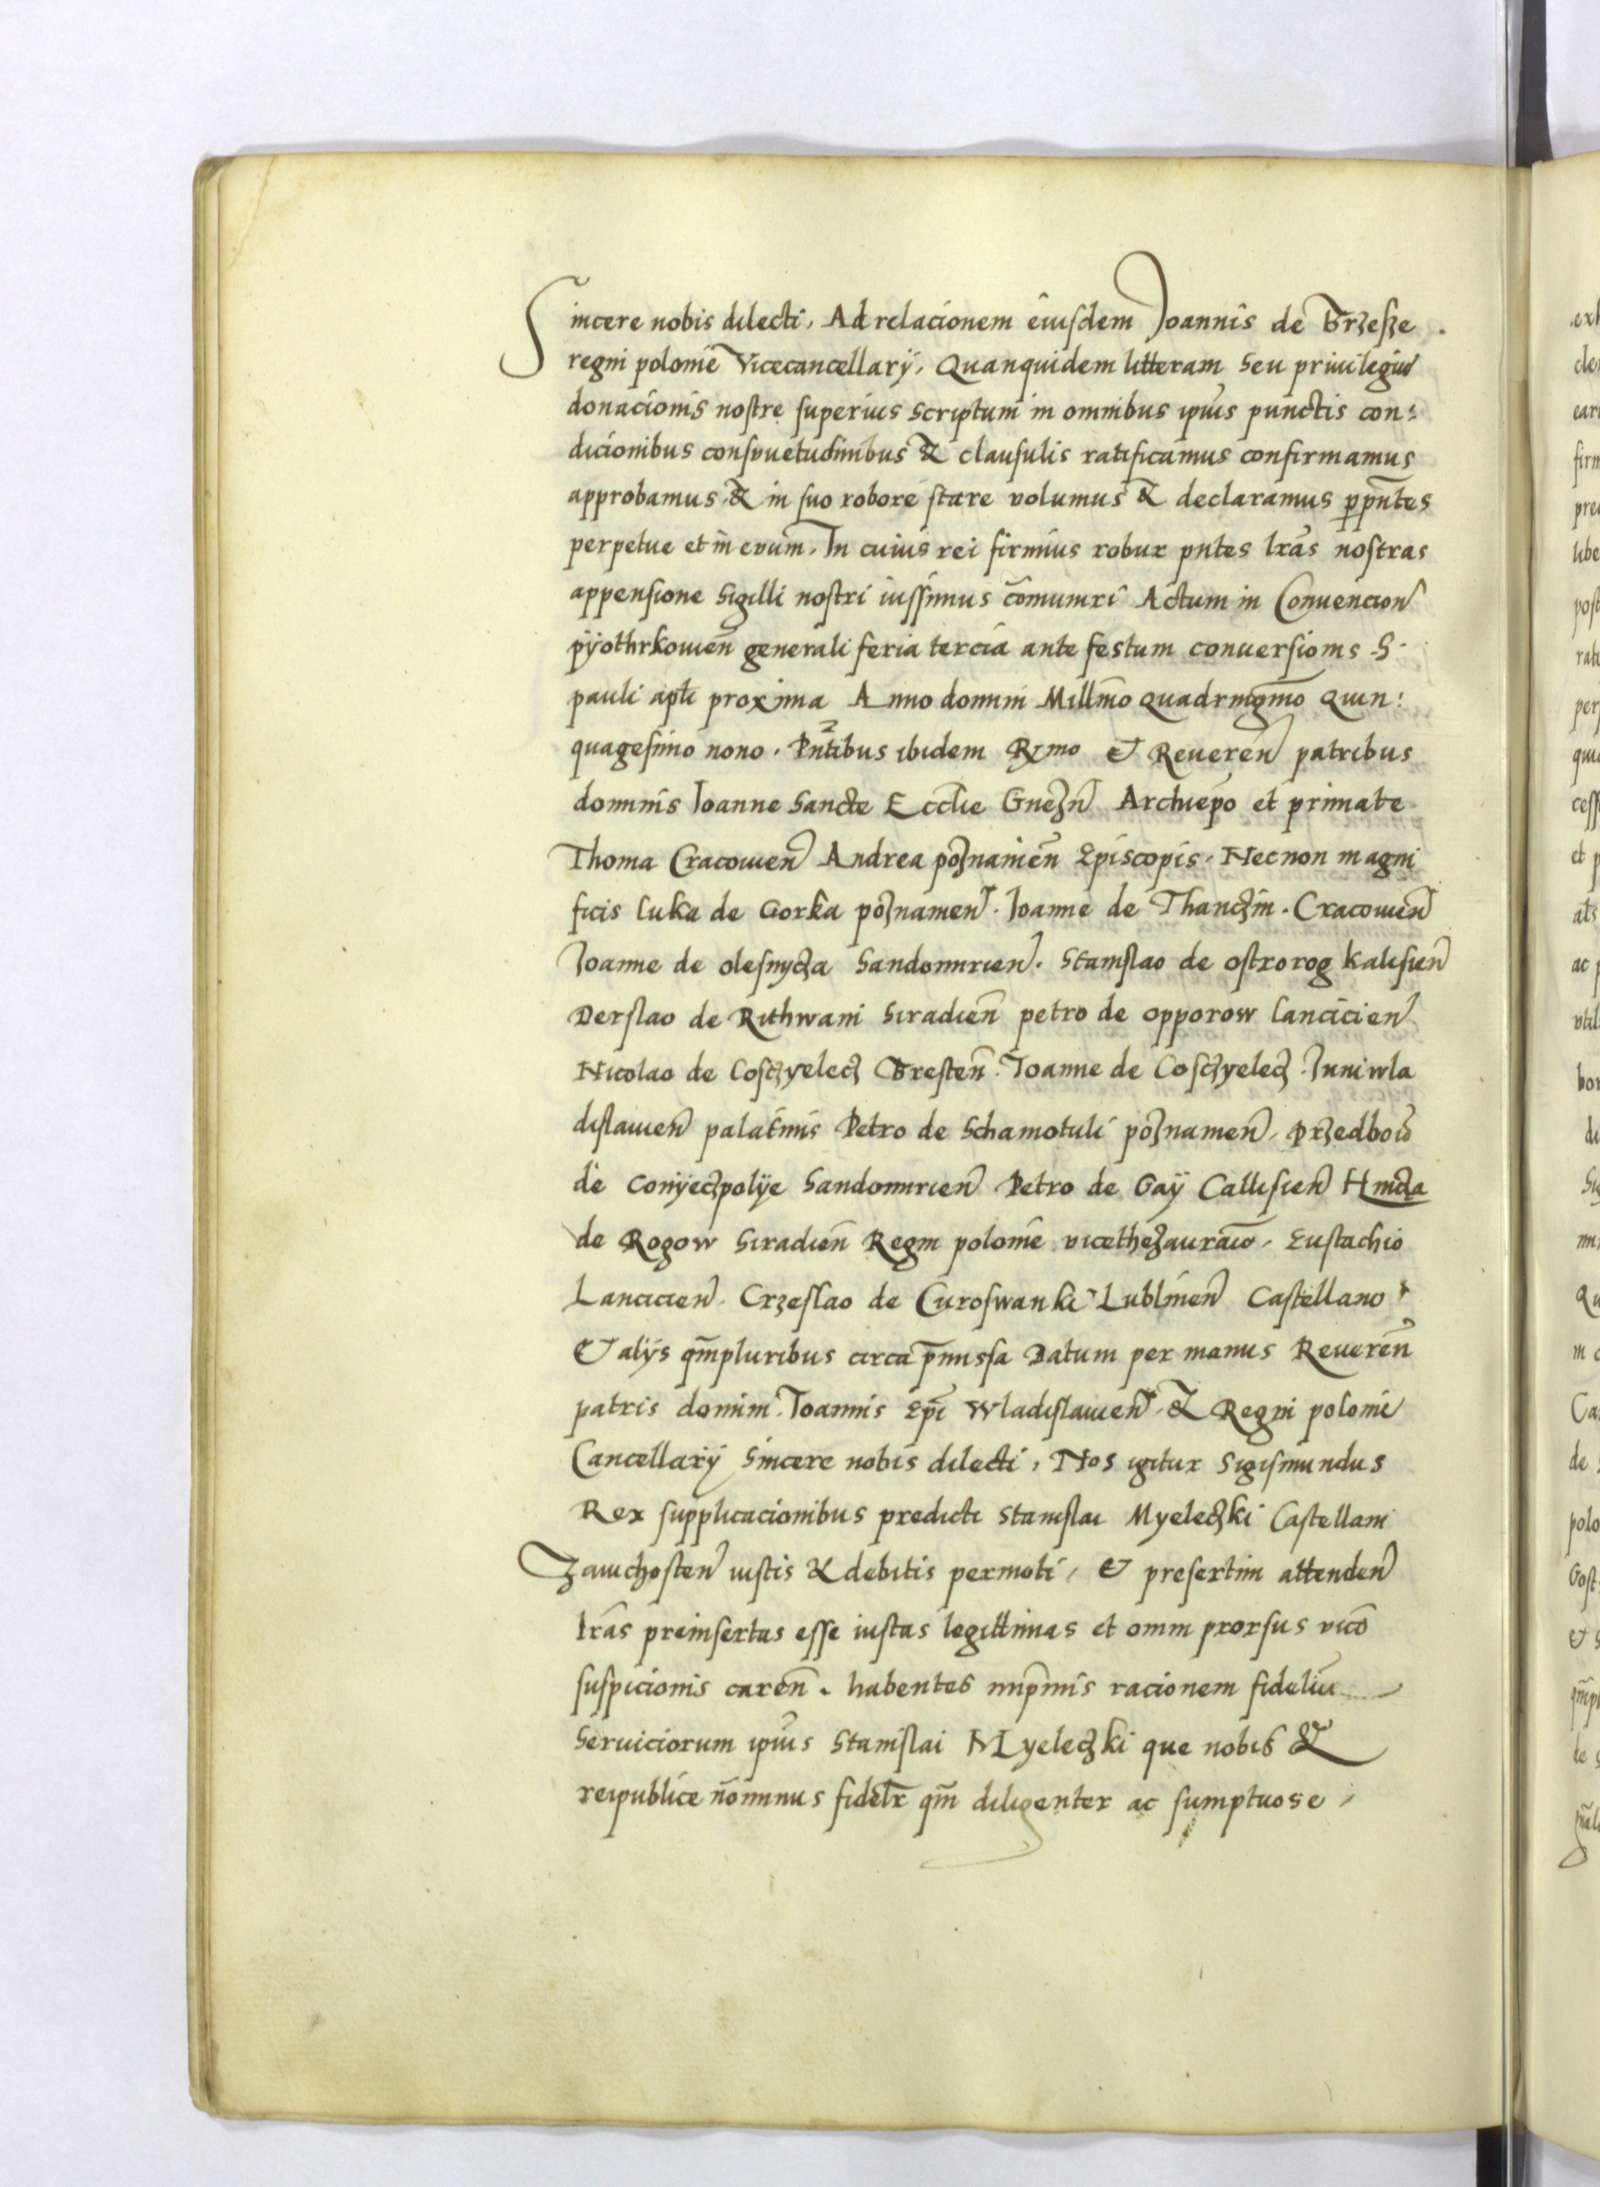 Sincere nobis dilecti, Ad relacionem eiusdem Joannis de Brzesze.
regni polonie Vicecancellarij, Quanquidem litteram seu priuilegiũ
donacionis nostrę superius scriptum in omnibus ipiũs punctis con:
dicionibus consvuetudinibus & clausulis ratificamus confirmamus
approbamus & in suo robore stare volumus & declaramus pp̃ñtes
perpetue et in evum. In cuius rei firmius robur pñtes lrãs nostras
appensione sigilli nostri iussimus cõmuniri Actum in Conuencioñ
pÿothrkowieñ generali feria tercia ante festum conuersionis S.
pauli apłi proxima Anno domini Millm̃o quadringm̃o Quin:
quagesimo nono. Pñtibus ibidem Rx̃mo et Reuereñ patribus
dominis Joanne sancte Eccłie Gnezñ Archiep̃o et primate
Thoma Cracouieñ Andrea poznanieñ Episcopis. Necnon magni
ficis luka de Gorka poznanieñ. Joanne de Thanczin. Cracouieñ
Joanne de olesnycza Sandomirieñ. Stanislao de ostrorog kalisieñ
Derslao de Rithwani Siradieñ petro de opporow lancicieñ
Nicolao de Coszyelecz Bresteñ. Joanne de Coszyelecz. Juniwla
dislauieñ palatinis Petro de Schamotuli poznanieñ, Przedboiõ
de Conÿeczpolÿe Sandomirieñ Petro de Gaÿ Callisieñ Hincza
de Rogow Siradieñ Regni polonie vicethezaurãio, Eustachio
Lancicieñ. Crzeslao de Curoswanki Lublineñ Castellano
et alÿs qm̃pluribus circa p̃missa Datum per manus Reuereñ
patris domini Joannis Ep̃i Wladislauieñ & Regni polonie
Cancellarÿ sincere nobis dilecti, Nos igitur Sigismundus
Rex supplicacionibus predicti Stanislai Myeleczki Castellani
Zawichosteñ iustis & debitis permoti, et presertim attendeñ
lrãs preinsertas esse iustas legittimas et omni prorsus vicõ
suspicionis careñ. habentes inp̃mis racionem fideliũ
seruiciorum ipiũs Stanislai Myeleczki que nobis &
reipublice ñominus fidelr̃ qm̃ diligenter ac sumptuose,